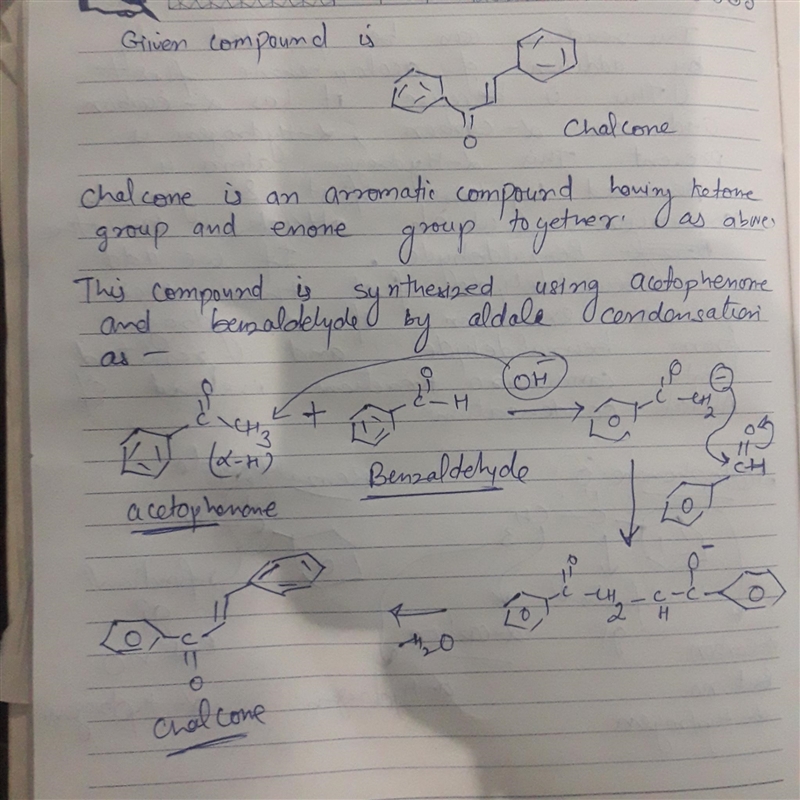 Given compound is
O
Chalcone
Chalcone is an arromatic compound having ketone
group and enone group together. as above.
This compound is synthesized using acetophenone
and benzaldelyde by aldale condensation
as —
O
C
CH3
(α-H)
acetophenone
+
O
C - H
Benzaldehyde
OH
O
C - CH2
O
O
CH
O
O
C - CH2 - C - C
H
O-
O
O
-H2O
O
C
O
Chalcone